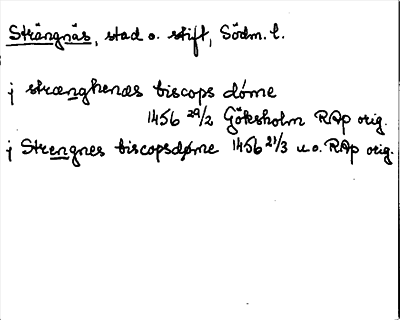 Strängnäs, stad o. stift, Södm. l.
j strænghenæs biscops døme
1456 29/2 Göksholm RAp orig.
j Strengnes biscopsdøme 1456 21/3 u.o. RAp orig.